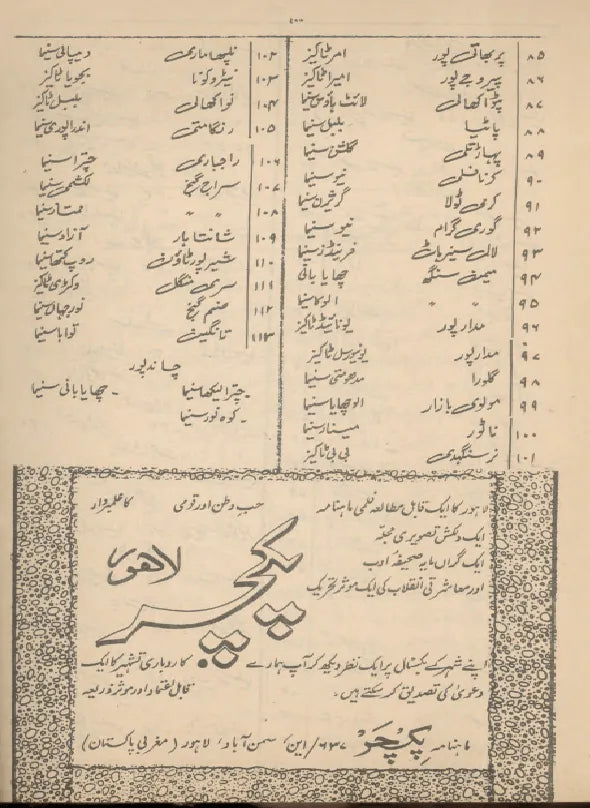 ۸۵ پربھاتی پور امر ٹاکیز
۸۶ پیروجے پور امیرا ٹاکیز
۸۷ پٹواکھالی لائٹ ہاؤس سنیما
۸۸ پاٹیا بلبل سنیما
۸۹ پہاڑتلی گلشن سنیما
۹۰ کرنافلی نیو سنیما
۹۱ کری ٹولا سنیما
۹۲ گوری گرام نیو سنیما
۹۳ لال منیر ہاٹ فرینڈز سنیما
۹۴ میمن سنگھ چھایا بانی
۹۵ " " الوکا سنیما
۹۶ مدار پور یونائیٹڈ ٹاکیز
۹۷ مدار پور یونیورسل ٹاکیز
۹۸ گلورا مدھومتی سنیما
۹۹ مولوی بازار الوچھایا سنیما
۱۰۰ ناٹور مینار سنیما
۱۰۱ نرسنگھدی بی بی ٹاکیز
۱۰۲ نلپھاماری دیپالی سنیما
۱۰۳ نیٹروکونا بجویا ٹاکیز
۱۰۴ نواکھالی بلبل ٹاکیز
۱۰۵ رنگامتی اندراپوری سنیما
۱۰۶ راجباری چترا سنیما
۱۰۷ سراج گنج لکشمی سنیما
۱۰۸ " " ممتاز سنیما
۱۰۹ شانتاہار آزاد سنیما
۱۱۰ شیرپور ٹاؤن روپ کتھا سنیما
۱۱۱ سری منگل وکٹری ٹاکیز
۱۱۲ صنم گنج نورجہاں سنیما
۱۱۳ تانگیٹ نوابا سنیما
چاند پور
۔ چترا لیکھا سنیما ۔ چھایا بانی سنیما
۔ کوہ نور سنیما
لاہور کا ایک قابل مطالعہ فلمی ماہنامہ حب وطن اور قومی کا علمبردار
ایک دلکش تصویری مجلّہ
ایک گراں مایہ صحیفۂ ادب
اور معاشرتی انقلاب کی ایک موثر تحریک
پکچر لاہور
اپنے شہر کے بکسٹال پر ایک نظر دیکھ کر آپ ہمارے کاروباری تشہیر کا ایک
دعویٰ کی تصدیق کر سکتے ہیں۔ قابل اعتماد اور موثر ذریعہ
ماہنامہ پکچر ۶۳۷/این، سمن آباد، لاہور (مغربی پاکستان)